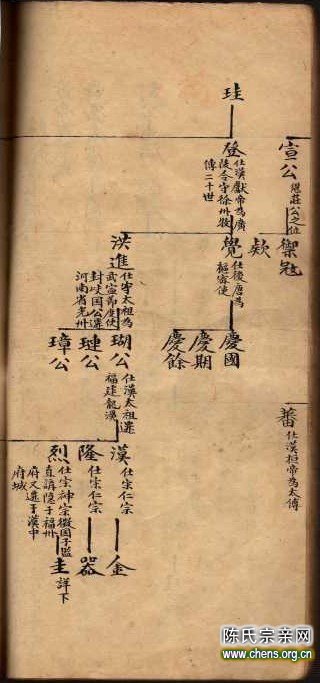 宣公
繼莊公之位
禦冦
欵
蕃
仕漢桓帝為太傅
珪
登
仕漢獻帝為廣
陵令守徐州牧
傳二十世
覺
仕後唐為
樞密使
慶國
慶期
慶餘
洪進
仕宋太祖為
武寧節度使
封岐国公遷
河南省光州
瑚公
仕漢太祖遷
福建龍溪
璉公
璋公
漢
仕宗仁宗
金
隆
仕宗仁宗
器
烈
仕宗神宗徵国子監
直講隱于福州
府又遷于漢中
府城
圭
詳下
陈氏宗亲网
www.chens.org.cn